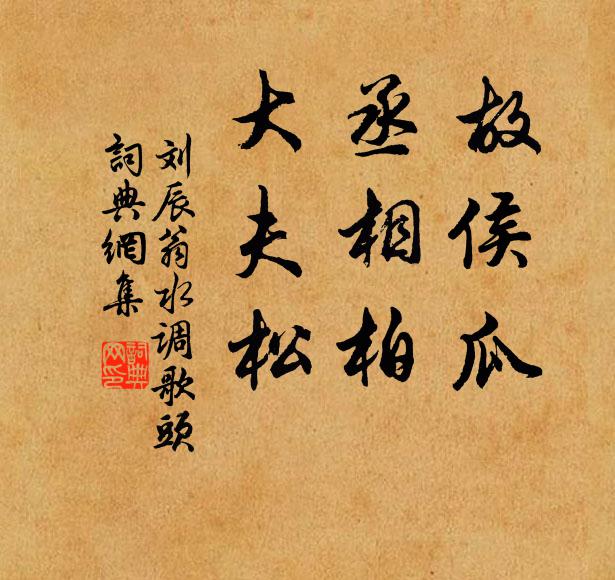 故侯瓜
丞相柏
大夫松
刘辰翁水调歌頭
詞典網集
詞典網印